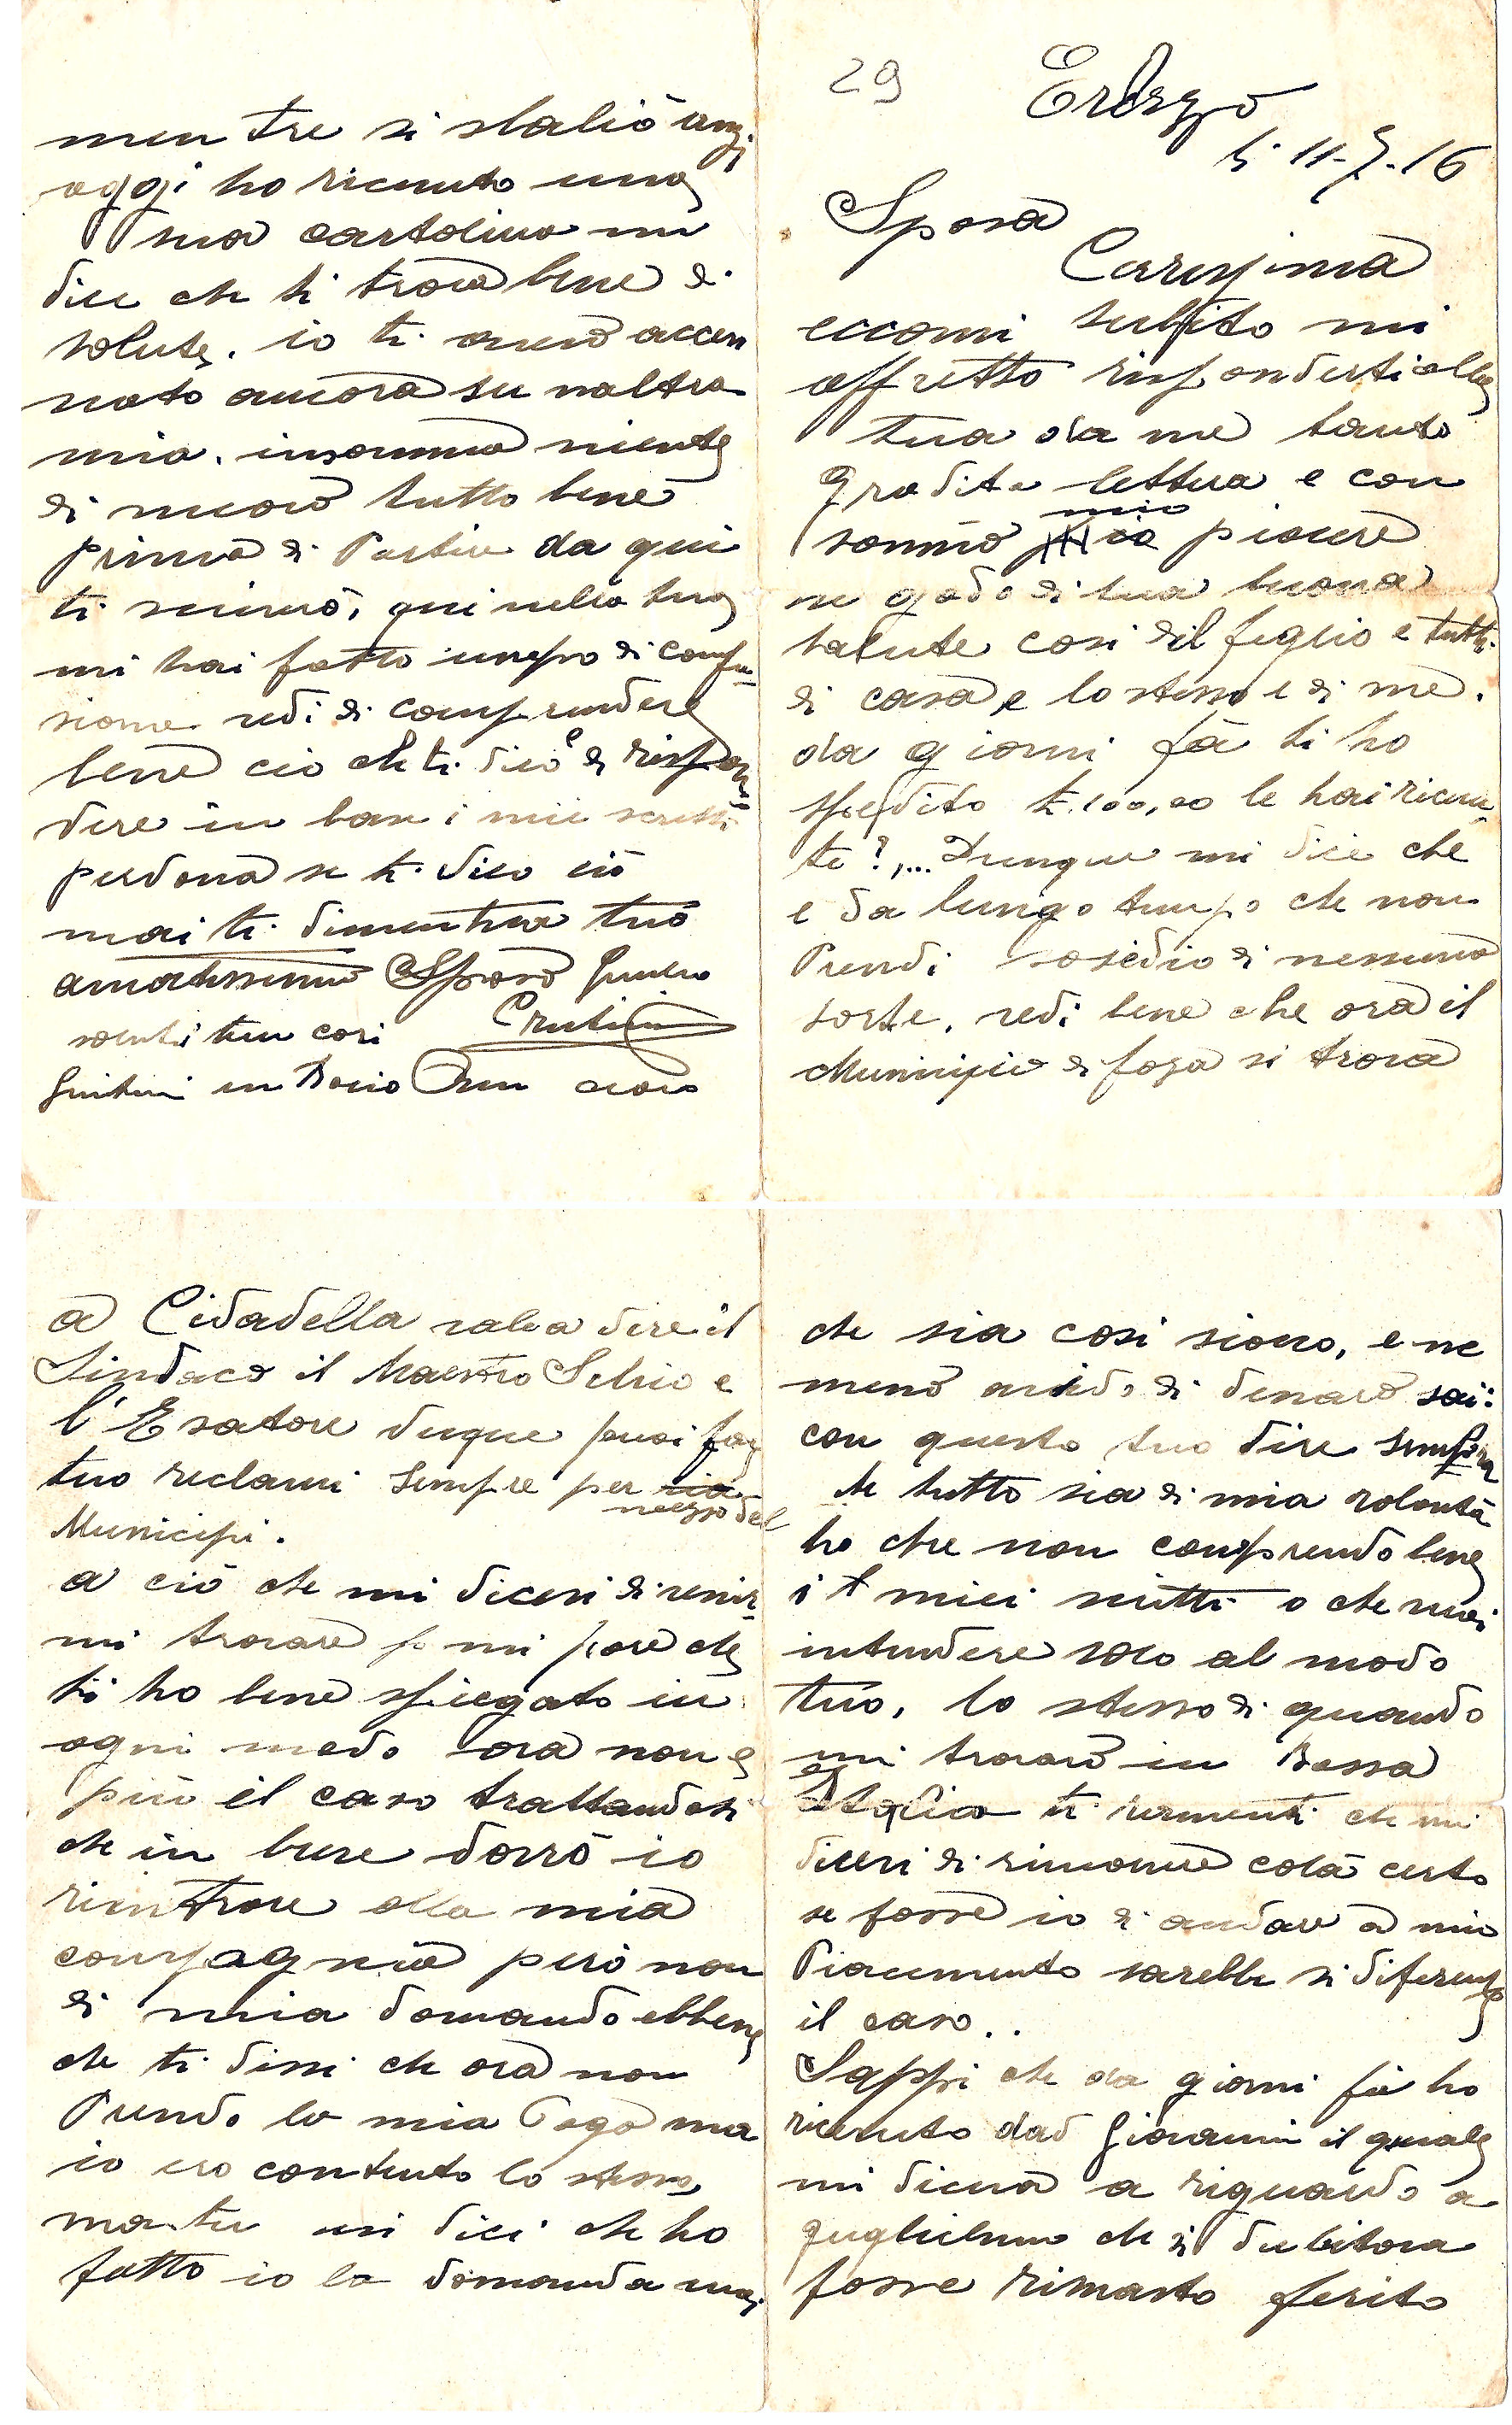 29
li 11-7-16
Sposa
Carissima
eccomi subito mi
affretto risponderti alla
tua da me tanto
gradita lettera e con
sommo mio piacere
ne godo di tua buona
salute cosi dil figlio e tutti
di casa e lo stesso e di me.
da giorni fà ti ho
spedito £.100,00 le hai ricevu-
te?,... Dunque mi dice che
e da lungo tempo che non
Prendi sosidio di nessuna
sorte, vedi bene che ora il
Municipio di foza si trova
a Cidadella valea dire il
Sindaco il Maestro Schio e
l'Esatore duque puoi far
tuo reclami sempre per
mezzo del
Municipi.
a ciò che mi dicevi di venir-
mi trovare mi pare che
ti ho bene spiegato in
ogni modo ora non e
più il caso trattandosi
che in breve dovrò io
rientrare alla mia
compagnia però non
di mia domanda ebbene
che ti dissi che ora non
Prendo la mia Paga ma
io ero contento lo stesso
ma tu mi dici che ho
fatto io la domanda mai
che sia cosi siono, e ne
meno avido di denaro sai:
con questo tuo dire sempra
che tutto sia di mia volontà
ho che non comprendo bene
i miei scritti o che vuoi
intendere solo al modo
tuo, lo stesso di quando
mi trovavo in Bassa
Italia ti rermenti che mi
dicevi di rimanere colà certo
se fosse io di andare a mio
Piacemento sarebbe si diferente
il caso..
Sappi che da giorni fà ho
ricevuto dad Giovanni il quale
mi diceva a riguardo a
guglielmo che si dubitava
fosse rimasto ferito
mentre si sbaliò anzi
oggi ho ricevuto una
sua cartolina mi
dice che si trova bene di
salute. io ti avevo accen
nato ancora su naltra
mia. insomma niente
di nuovo tutto bene
prima di Partire da qui
ti scriverò, qui nella tua
mi hai fatto unepo di confu-
sione vedi di comprendere
bene ciò che ti dico e di rispon
dere in base i miei scritti
perdona se ti dico ciò
mai ti dimentica tuo
amatissimo Sposo
saluti tuoi cari
Genitori un Bacio